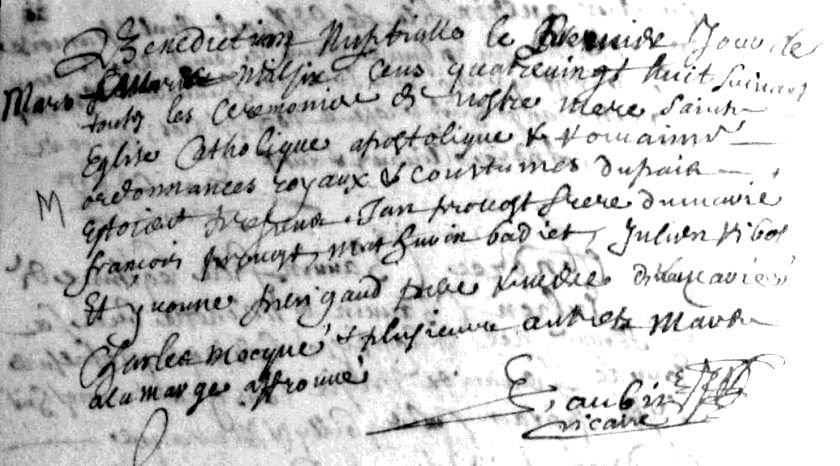 Benediction Nuptialle le premier Jour de
Mars mil six cens quatrevingt huit Suivant
toutes les ceremonies de nostre mere Sainte
Eglise Catholique apostolique & romaine
ordonnances royaux & coustumes du pais
M
Estoient presens Jan provost frere du marie
francois provost mathurin badiet, Julien
Et yvonne pere & mere de la mariee
Charles mocque & plusieurs autres Mars
a la marge approuvé
aubin
vicaire